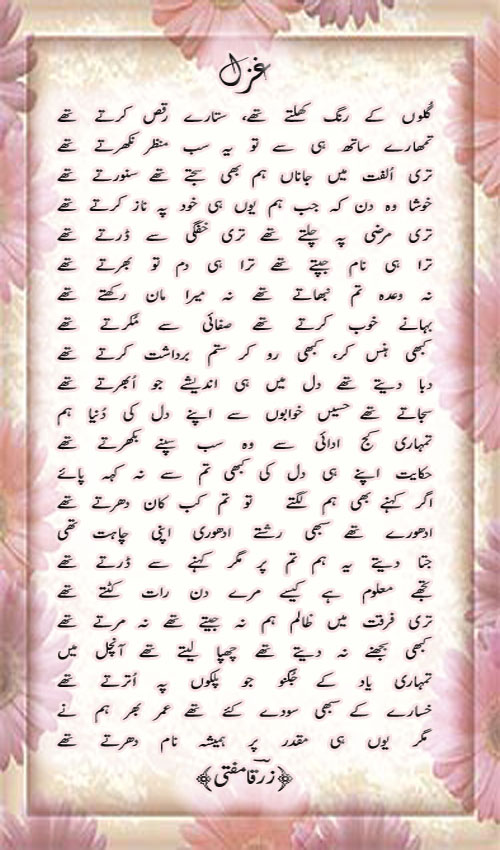 غزل
گلوں کے رنگ کھلتے تھے، ستارے رقص کرتے تھے
تمھارے ساتھ ہی سے تو یہ سب منظر نکھرتے تھے
تری اُلفت میں جاناں ہم بھی سجتے تھے سنورتے تھے
خوشا وہ دن کہ جب ہم یوں ہی خود پہ ناز کرتے تھے
تری مرضی پہ چلتے تھے تری خفگی سے ڈرتے تھے
ترا ہی نام جپتے تھے ترا ہی دم تو بھرتے تھے
نہ وعدہ تم نبھاتے تھے نہ میرا مان رکھتے تھے
بہانے خوب کرتے تھے صفائی سے مُکرتے تھے
کبھی ہنس کر، کبھی رو کر ستم برداشت کرتے تھے
دبا دیتے تھے دل میں ہی اندیشے جو اُبھرتے تھے
سجاتے تھے حسیں خوابوں سے اپنے دل کی دُنیا ہم
تمہاری کج ادائی سے وہ سب سپنے بکھرتے تھے
حکایت اپنے ہی دل کی کبھی تم سے نہ کہہ پائے
اگر کہنے بھی ہم لگتے تو تم کب کان دھرتے تھے
ادھورے تھے سبھی رشتے ادھوری اپنی چاہت تھی
جتا دیتے یہ ہم تم پر مگر کہنے سے ڈرتے تھے
تجھے معلوم ہے کیسے مرے دن رات کٹتے تھے
تری فرقت میں ظالم ہم نہ جیتے تھے نہ مرتے تھے
کبھی بجھنے نہ دیتے تھے چھپا لیتے تھے آنچل میں
تمہاری یاد کے جگنو جو پلکوں پہ اُترتے تھے
خسارے کے سبھی سودے کئے تھے عمر بھر ہم نے
مگر یوں ہی مقدر پر ہمیشہ نام دھرتے تھے
﴿زرقا مفتی﴾